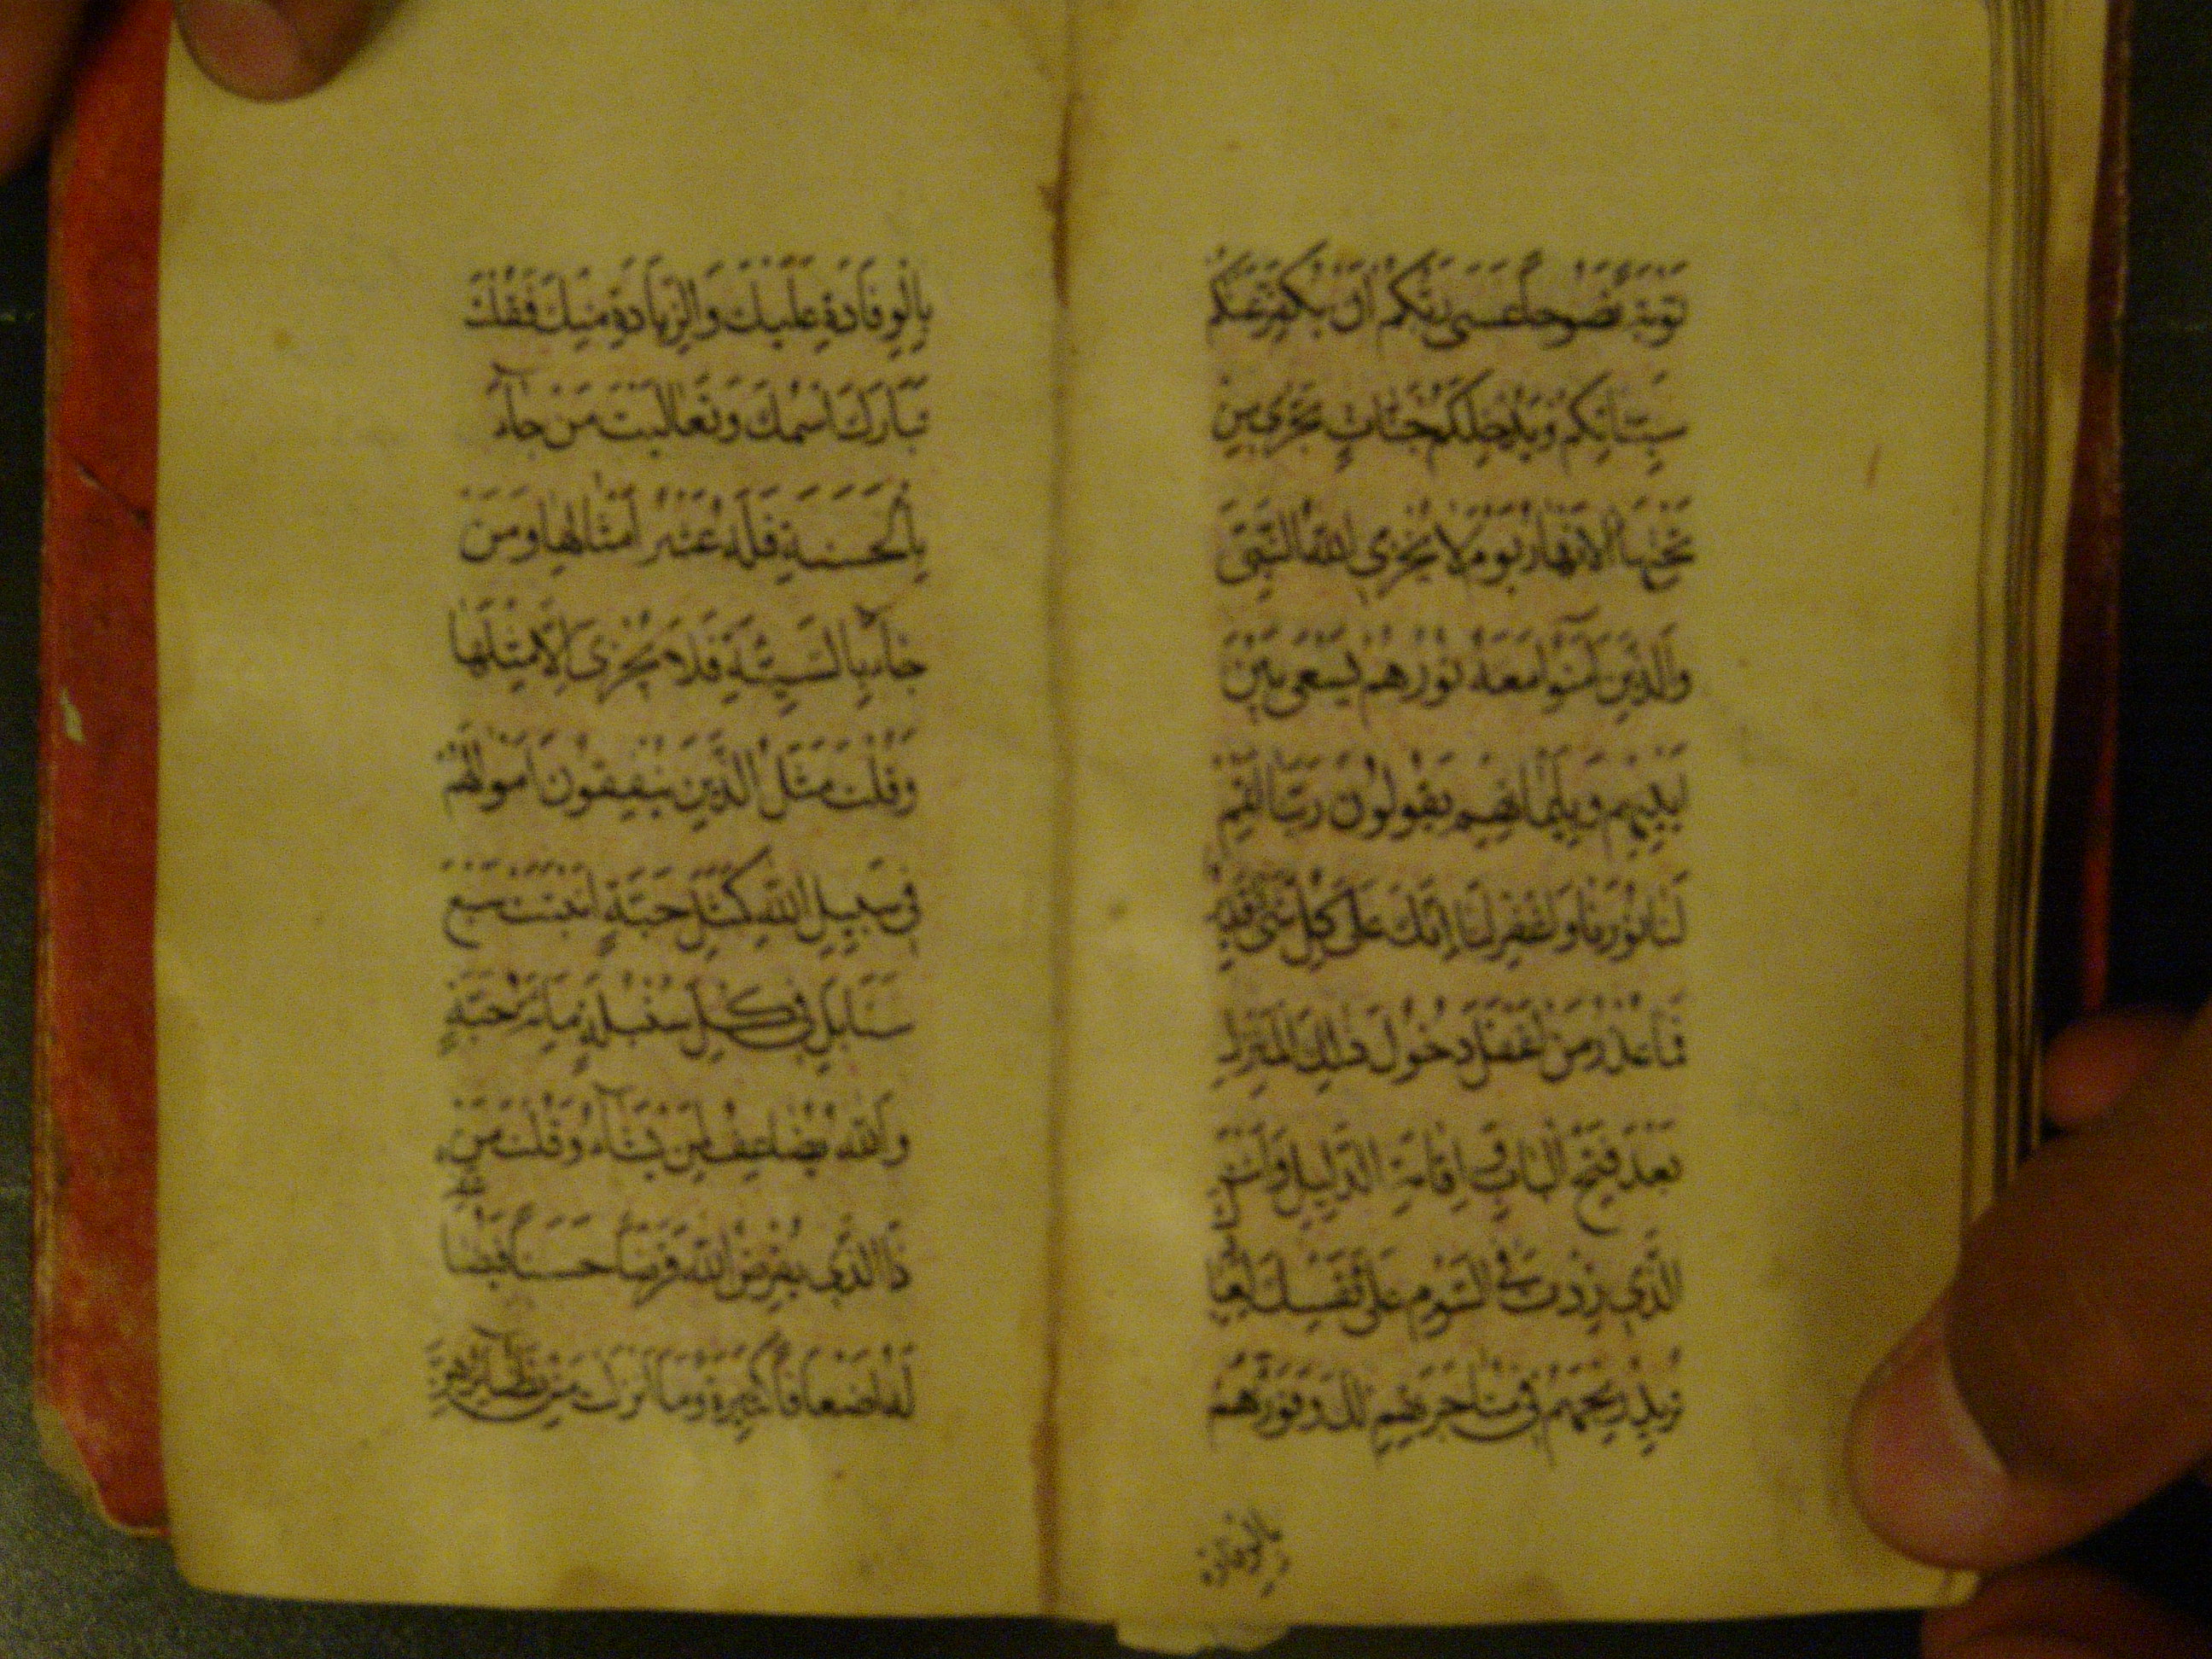 تَوْبَةً نَصُوحًا عَسَى رَبُّكُمْ أَنْ يُكَفِّرَ عَنْكُمْ
سَيِّئَاتِكُمْ وَيُدْخِلَكُمْ جَنَّاتٍ تَجْرِي مِنْ
تَحْتِهَا الْأَنْهَارُ يَوْمَ لَا يُخْزِي اللَّهُ النَّبِيَّ
وَالَّذِينَ آمَنُوا مَعَهُ نُورُهُمْ يَسْعَى بَيْنَ
أَيْدِيهِمْ وَبِأَيْمَانِهِمْ يَقُولُونَ رَبَّنَا أَتْمِمْ
لَنَا نُورَنَا وَاغْفِرْ لَنَا إِنَّكَ عَلَى كُلِّ شَيْءٍ قَدِيرٌ
فَمَا عُذْرُ مَنْ أَغْفَلَ دُخُولَ ذَلِكَ الْمَنْزِلِ
بَعْدَ فَتْحِ الْبَابِ وَإِقَامَةِ الدَّلِيلِ وَأَنْتَ
الَّذِي زِدْتَ فِي السَّوْمِ عَلَى نَفْسِكَ لِعِبَادِكَ
تُرِيدُ رِبْحَهُمْ فِي مُتَاجَرَتِهِمْ لَكَ وَفَوْزَهُمْ
بِالْوِفَادَةِ
بِالْوِفَادَةِ عَلَيْكَ وَالزِّيَادَةِ مِنْكَ فَقُلْتَ
تَبَارَكَ اسْمُكَ وَتَعَالَيْتَ مَنْ جَاءَ
بِالْحَسَنَةِ فَلَهُ عَشْرُ أَمْثَالِهَا وَمَنْ
جَاءَ بِالسَّيِّئَةِ فَلَا يُجْزَى إِلَّا مِثْلَهَا
وَقُلْتَ مَثَلُ الَّذِينَ يُنْفِقُونَ أَمْوَالَهُمْ
فِي سَبِيلِ اللَّهِ كَمَثَلِ حَبَّةٍ أَنْبَتَتْ سَبْعَ
سَنَابِلَ فِي كُلِّ سُنْبُلَةٍ مِائَةُ حَبَّةٍ
وَاللَّهُ يُضَاعِفُ لِمَنْ يَشَاءُ وَقُلْتَ مَنْ
ذَا الَّذِي يُقْرِضُ اللَّهَ قَرْضًا حَسَنًا فَيُضَاعِفَهُ
لَهُ أَضْعَافًا كَثِيرَةً وَمَا أَنْزَلْتَ مِنْ نَظَائِرِهِنَّ